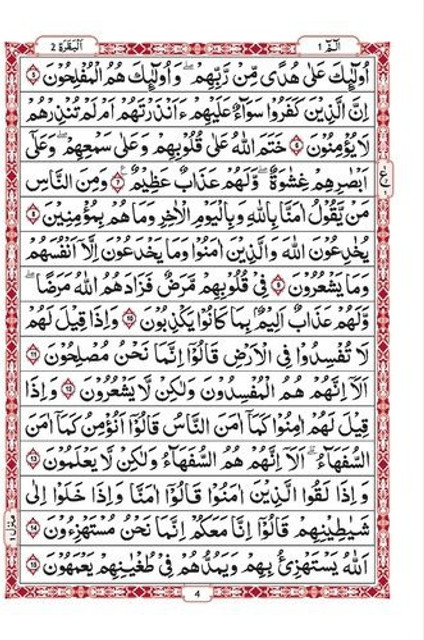 الٓمّٓ ١ البقرة ٢
اُولٰٓئِكَ عَلٰى هُدًى مِّنْ رَّبِّهِمْ ۖ وَاُولٰٓئِكَ هُمُ الْمُفْلِحُوْنَ ۝٥
اِنَّ الَّذِيْنَ كَفَرُوْا سَوَآءٌ عَلَيْهِمْ ءَاَنْذَرْتَهُمْ اَمْ لَمْ تُنْذِرْهُمْ
لَا يُؤْمِنُوْنَ ۝٦ خَتَمَ اللّٰهُ عَلٰى قُلُوْبِهِمْ وَعَلٰى سَمْعِهِمْ ۖ وَعَلٰٓى
اَبْصَارِهِمْ غِشَاوَةٌ ۖ وَّلَهُمْ عَذَابٌ عَظِيْمٌ ۝٧ وَمِنَ النَّاسِ
مَنْ يَّقُوْلُ اٰمَنَّا بِاللّٰهِ وَبِالْيَوْمِ الْاٰخِرِ وَمَا هُمْ بِمُؤْمِنِيْنَ ۝٨
يُخٰدِعُوْنَ اللّٰهَ وَالَّذِيْنَ اٰمَنُوْا وَمَا يَخْدَعُوْنَ اِلَّآ اَنْفُسَهُمْ
وَمَا يَشْعُرُوْنَ ۝٩ فِيْ قُلُوْبِهِمْ مَّرَضٌ فَزَادَهُمُ اللّٰهُ مَرَضًا ۖ
وَّلَهُمْ عَذَابٌ اَلِيْمٌ بِمَا كَانُوْا يَكْذِبُوْنَ ۝١٠ وَاِذَا قِيْلَ لَهُمْ
لَا تُفْسِدُوْا فِي الْاَرْضِ قَالُوْٓا اِنَّمَا نَحْنُ مُصْلِحُوْنَ ۝١١
اَلَآ اِنَّهُمْ هُمُ الْمُفْسِدُوْنَ وَلٰكِنْ لَّا يَشْعُرُوْنَ ۝١٢ وَاِذَا
قِيْلَ لَهُمْ اٰمِنُوْا كَمَآ اٰمَنَ النَّاسُ قَالُوْٓا اَنُؤْمِنُ كَمَآ اٰمَنَ
السُّفَهَآءُ ۗ اَلَآ اِنَّهُمْ هُمُ السُّفَهَآءُ وَلٰكِنْ لَّا يَعْلَمُوْنَ ۝١٣
وَاِذَا لَقُوا الَّذِيْنَ اٰمَنُوْا قَالُوْٓا اٰمَنَّا وَاِذَا خَلَوْا اِلٰى
شَيٰطِيْنِهِمْ قَالُوْٓا اِنَّا مَعَكُمْ اِنَّمَا نَحْنُ مُسْتَهْزِءُوْنَ ۝١٤
اَللّٰهُ يَسْتَهْزِئُ بِهِمْ وَيَمُدُّهُمْ فِيْ طُغْيَانِهِمْ يَعْمَهُوْنَ ۝١٥
ع
منزل
4